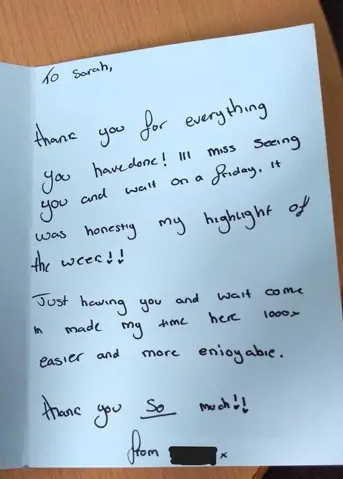 To Sarah,
thank you for everything
you have done! Ill miss seeing
you and Walt on a friday. It
was honestly my highlight of
the week!!
Just having you and Walt come
in made my time here 1000x
easier and more enjoyable.
thank you so much!!
from x